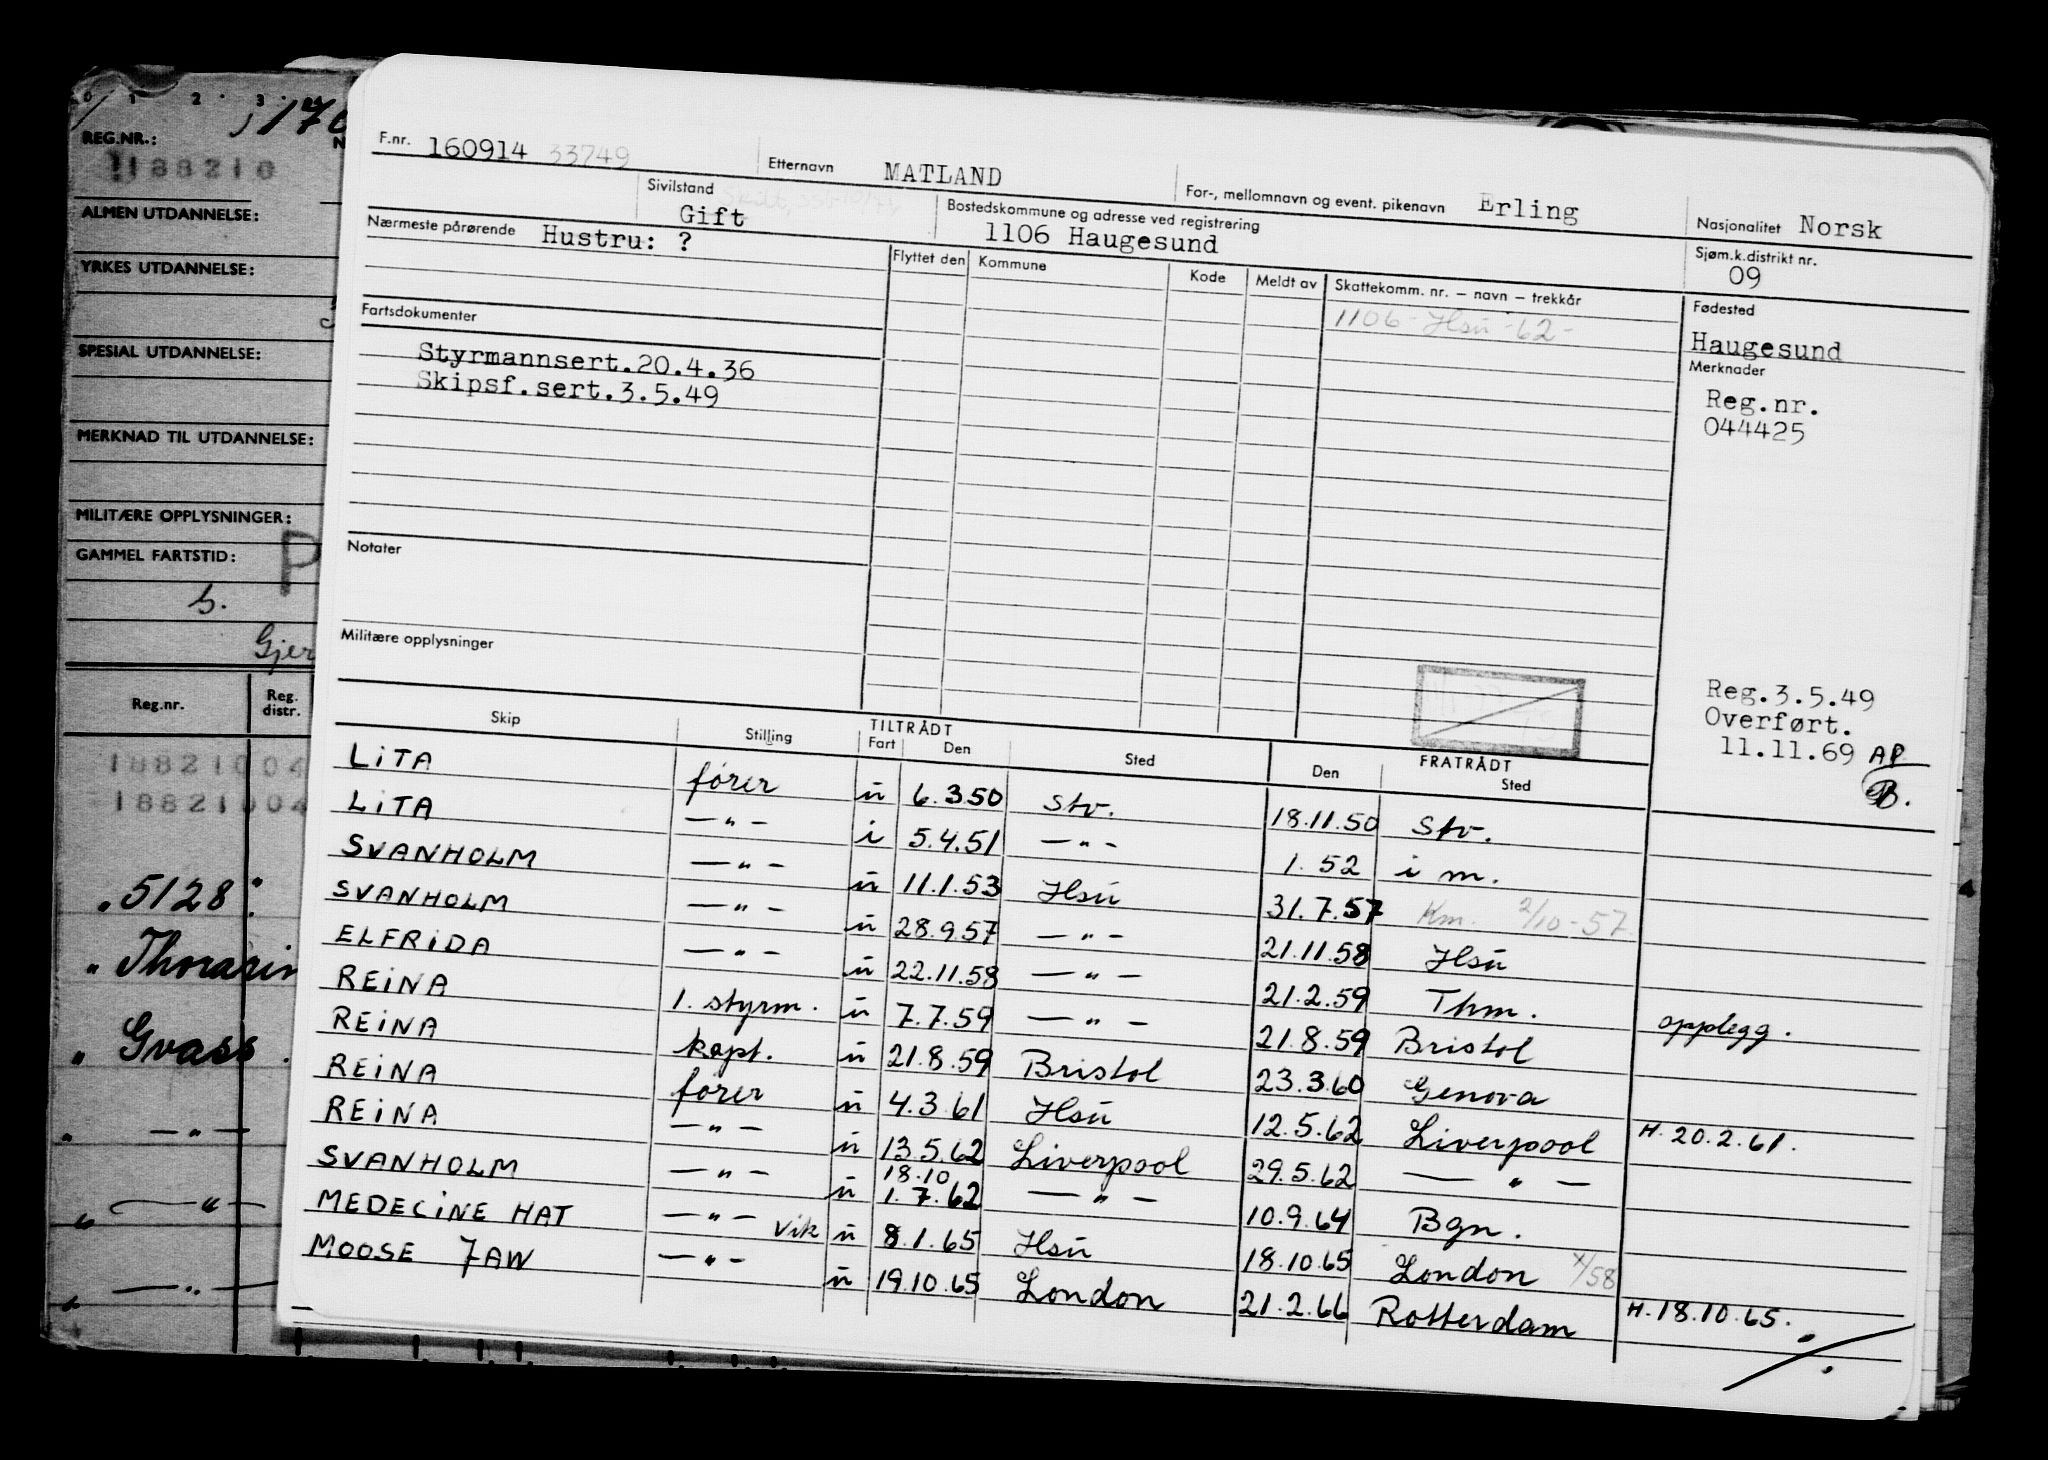 0 1 2 3
REG.NR.:
188210
ALMEN UTDANNELSE:
YRKES UTDANNELSE:
SPESIAL UTDANNELSE:
MERKNAD TIL UTDANNELSE:
MILITÆRE OPPLYSNINGER:
GAMMEL FARTSTID:
P
Reg.nr. Reg. distr.
188210 04
188210 04
" 5128"
" Thorarin
" Gvass
" — " —
" — " —
" — " —
F.nr. 160914 33749 Etternavn MATLAND For-, mellomnavn og event. pikenavn Erling Nasjonalitet Norsk
Sivilstand Gift Bostedskommune og adresse ved registrering 1106 Haugesund Sjøm.k.distrikt nr. 09
Nærmeste pårørende Hustru: ? Flyttet den Kommune Kode Meldt av Skattekomm. nr. – navn – trekkår Fødested
1106 - Hsu - 62 -
Haugesund
Fartsdokumenter
Merknader
Styrmannsert.20.4.36
Skipsf.sert.3.5.49
Reg.nr.
044425
Notater
Militære opplysninger
Reg.3.5.49
Overført.
11.11.69 AP
B.
TILTRÅDT FRATRÅDT
Skip Stilling Fart Den Sted Den Sted
LiTA fører u 6.3.50 Stv. 18.11.50 Stv.
LiTA — " — i 5.4.51 — " — 1. 52 i m.
SVANHOLM — " — u 11.1.53 Hsu 31.7.57 Km. 2/10-57.
SVANHOLM — " — u 28.9.57 — " — 21.11.58 Hsu
ELFRiDA — " — u 22.11.58 — " — 21.2.59 Thm. opplegg.
REiNA 1. styrm. u 7.7.59 — " — 21.8.59 Bristol
REiNA kapt. u 21.8.59 Bristol 23.3.60 Genova
REiNA fører u 4.3.61 Hsu 12.5.62 Liverpool H. 20.2.61.
REiNA — " — u 13.5.62 Liverpool 29.5.62 — " —
18.10
SVANHOLM — " — u 1.7.62 — " — 10.9.64 Bgn.
MEDECiNE HAT — " — vik u 8.1.65 Hsu 18.10.65 London x/58
MOOSE JAW — " — u 19.10.65 London 21.2.66 Rotterdam H.18.10.65.